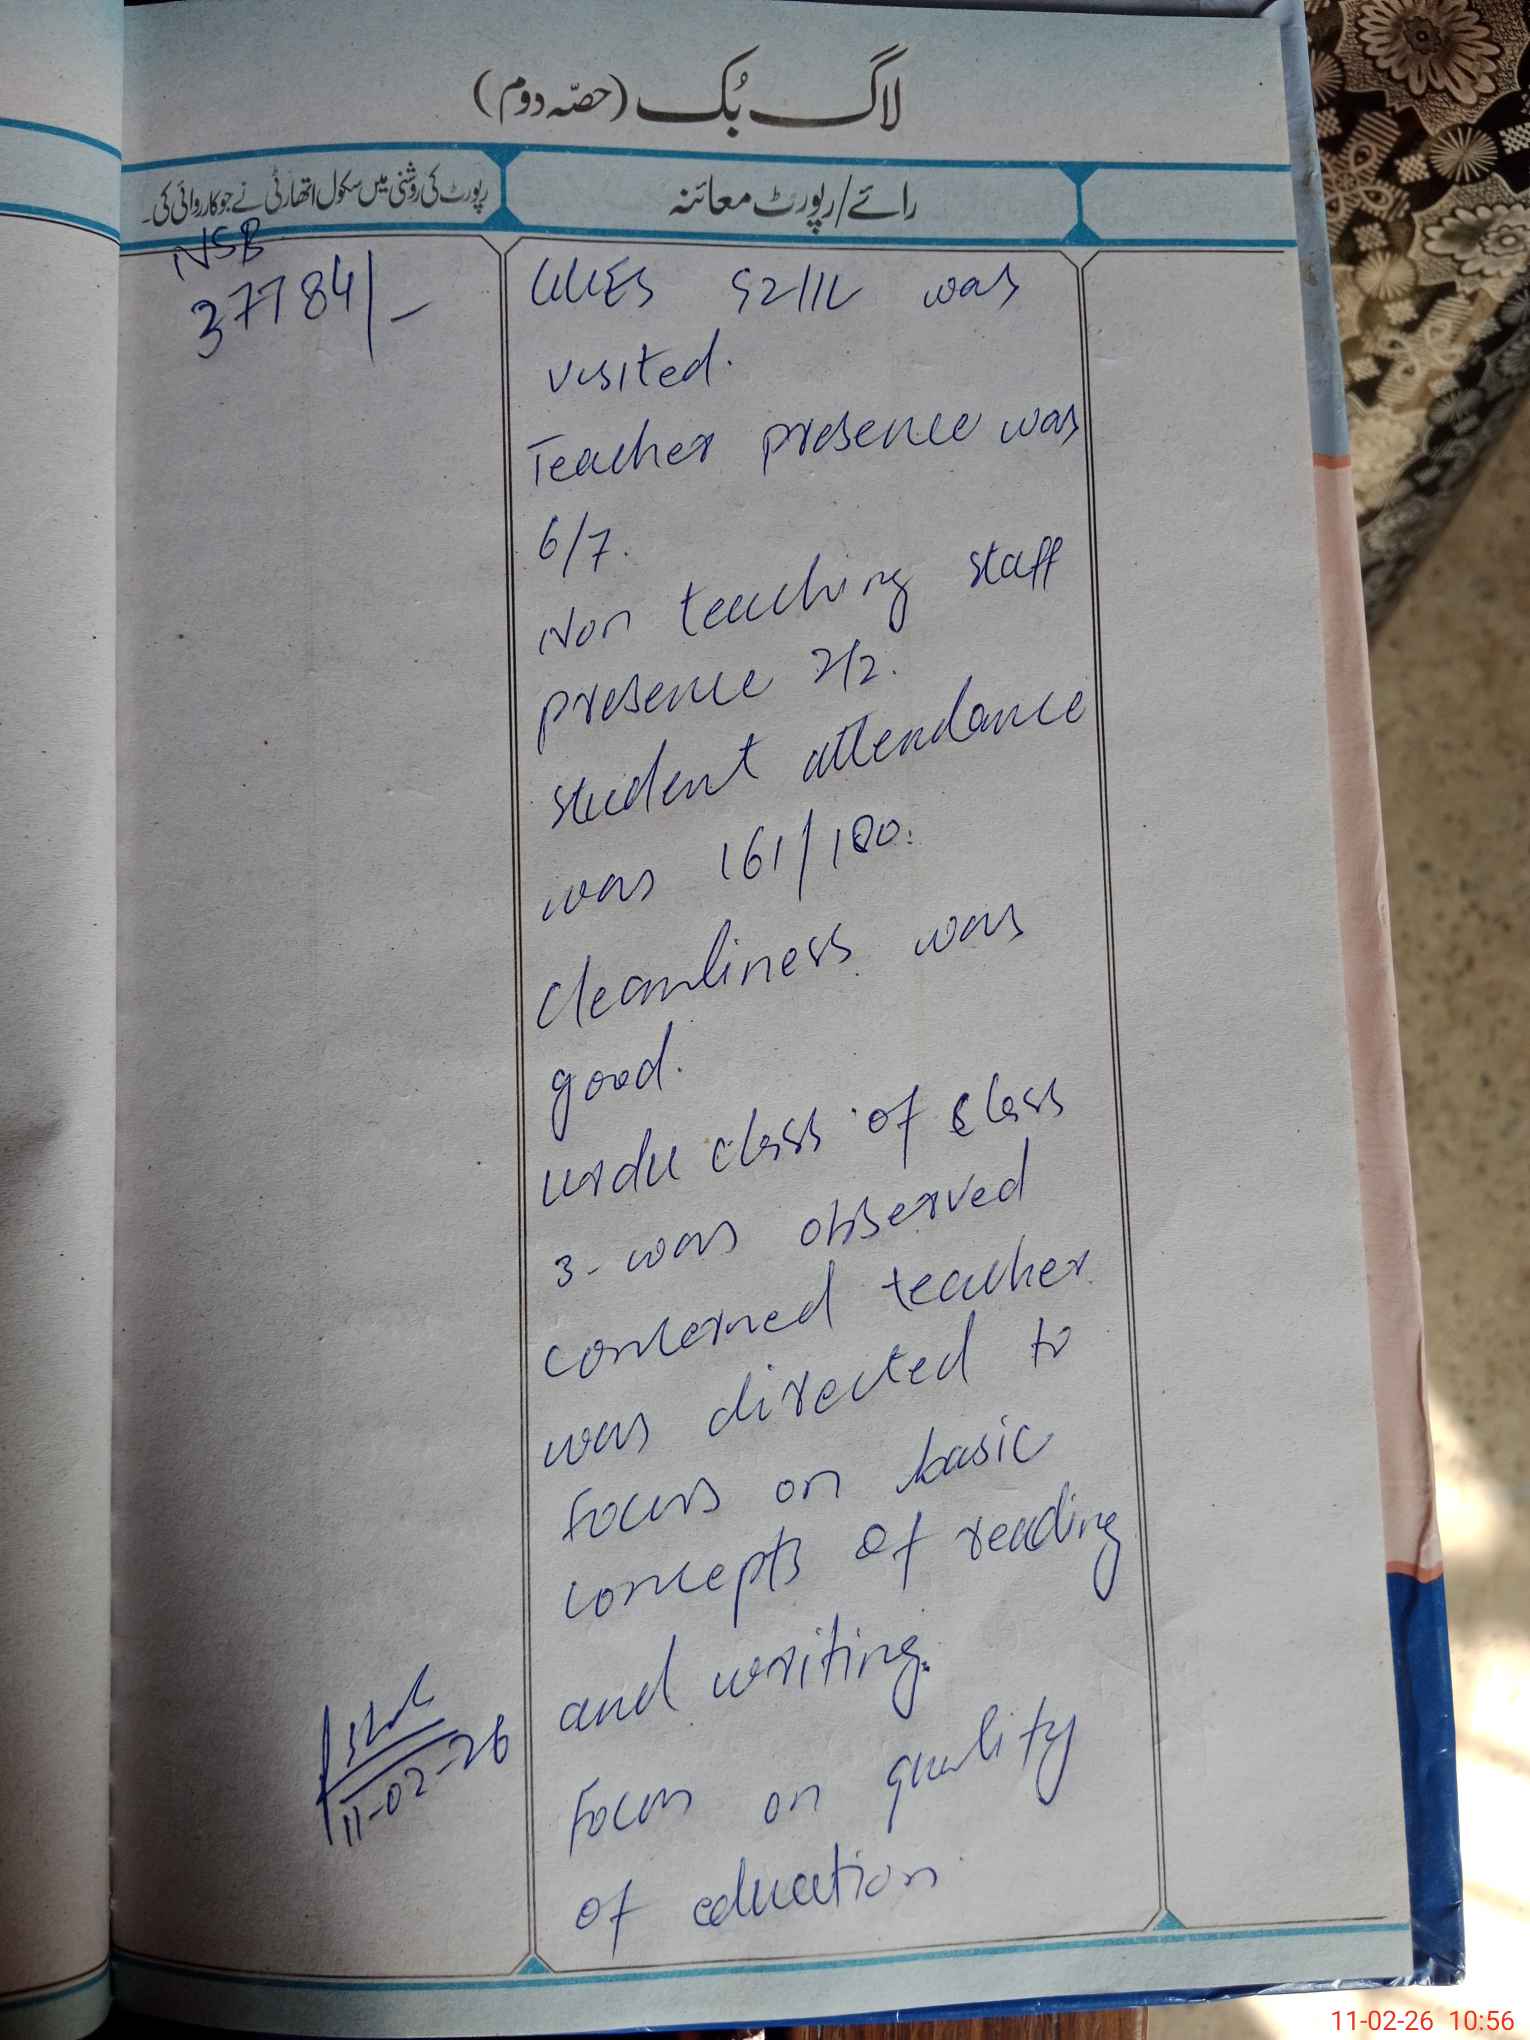 لاگ بُک (حصّہ دوم)
رائے/رپورٹ معائنہ
رپورٹ کی روشنی میں سکول اتھارٹی نے جو کارروائی کی۔
NSB
37784/-
was
visited.
Teacher presence was
6/7.
Non teaching staff
presence 2/2.
student attendance
was 161/180.
Cleanliness was
good.
urdu class of class
3- was observed
concerned teacher
was directed to
Focus on basic
concepts of reading
and writing.
Focus on quality
of education
11-02-26
11-02-26 10:56